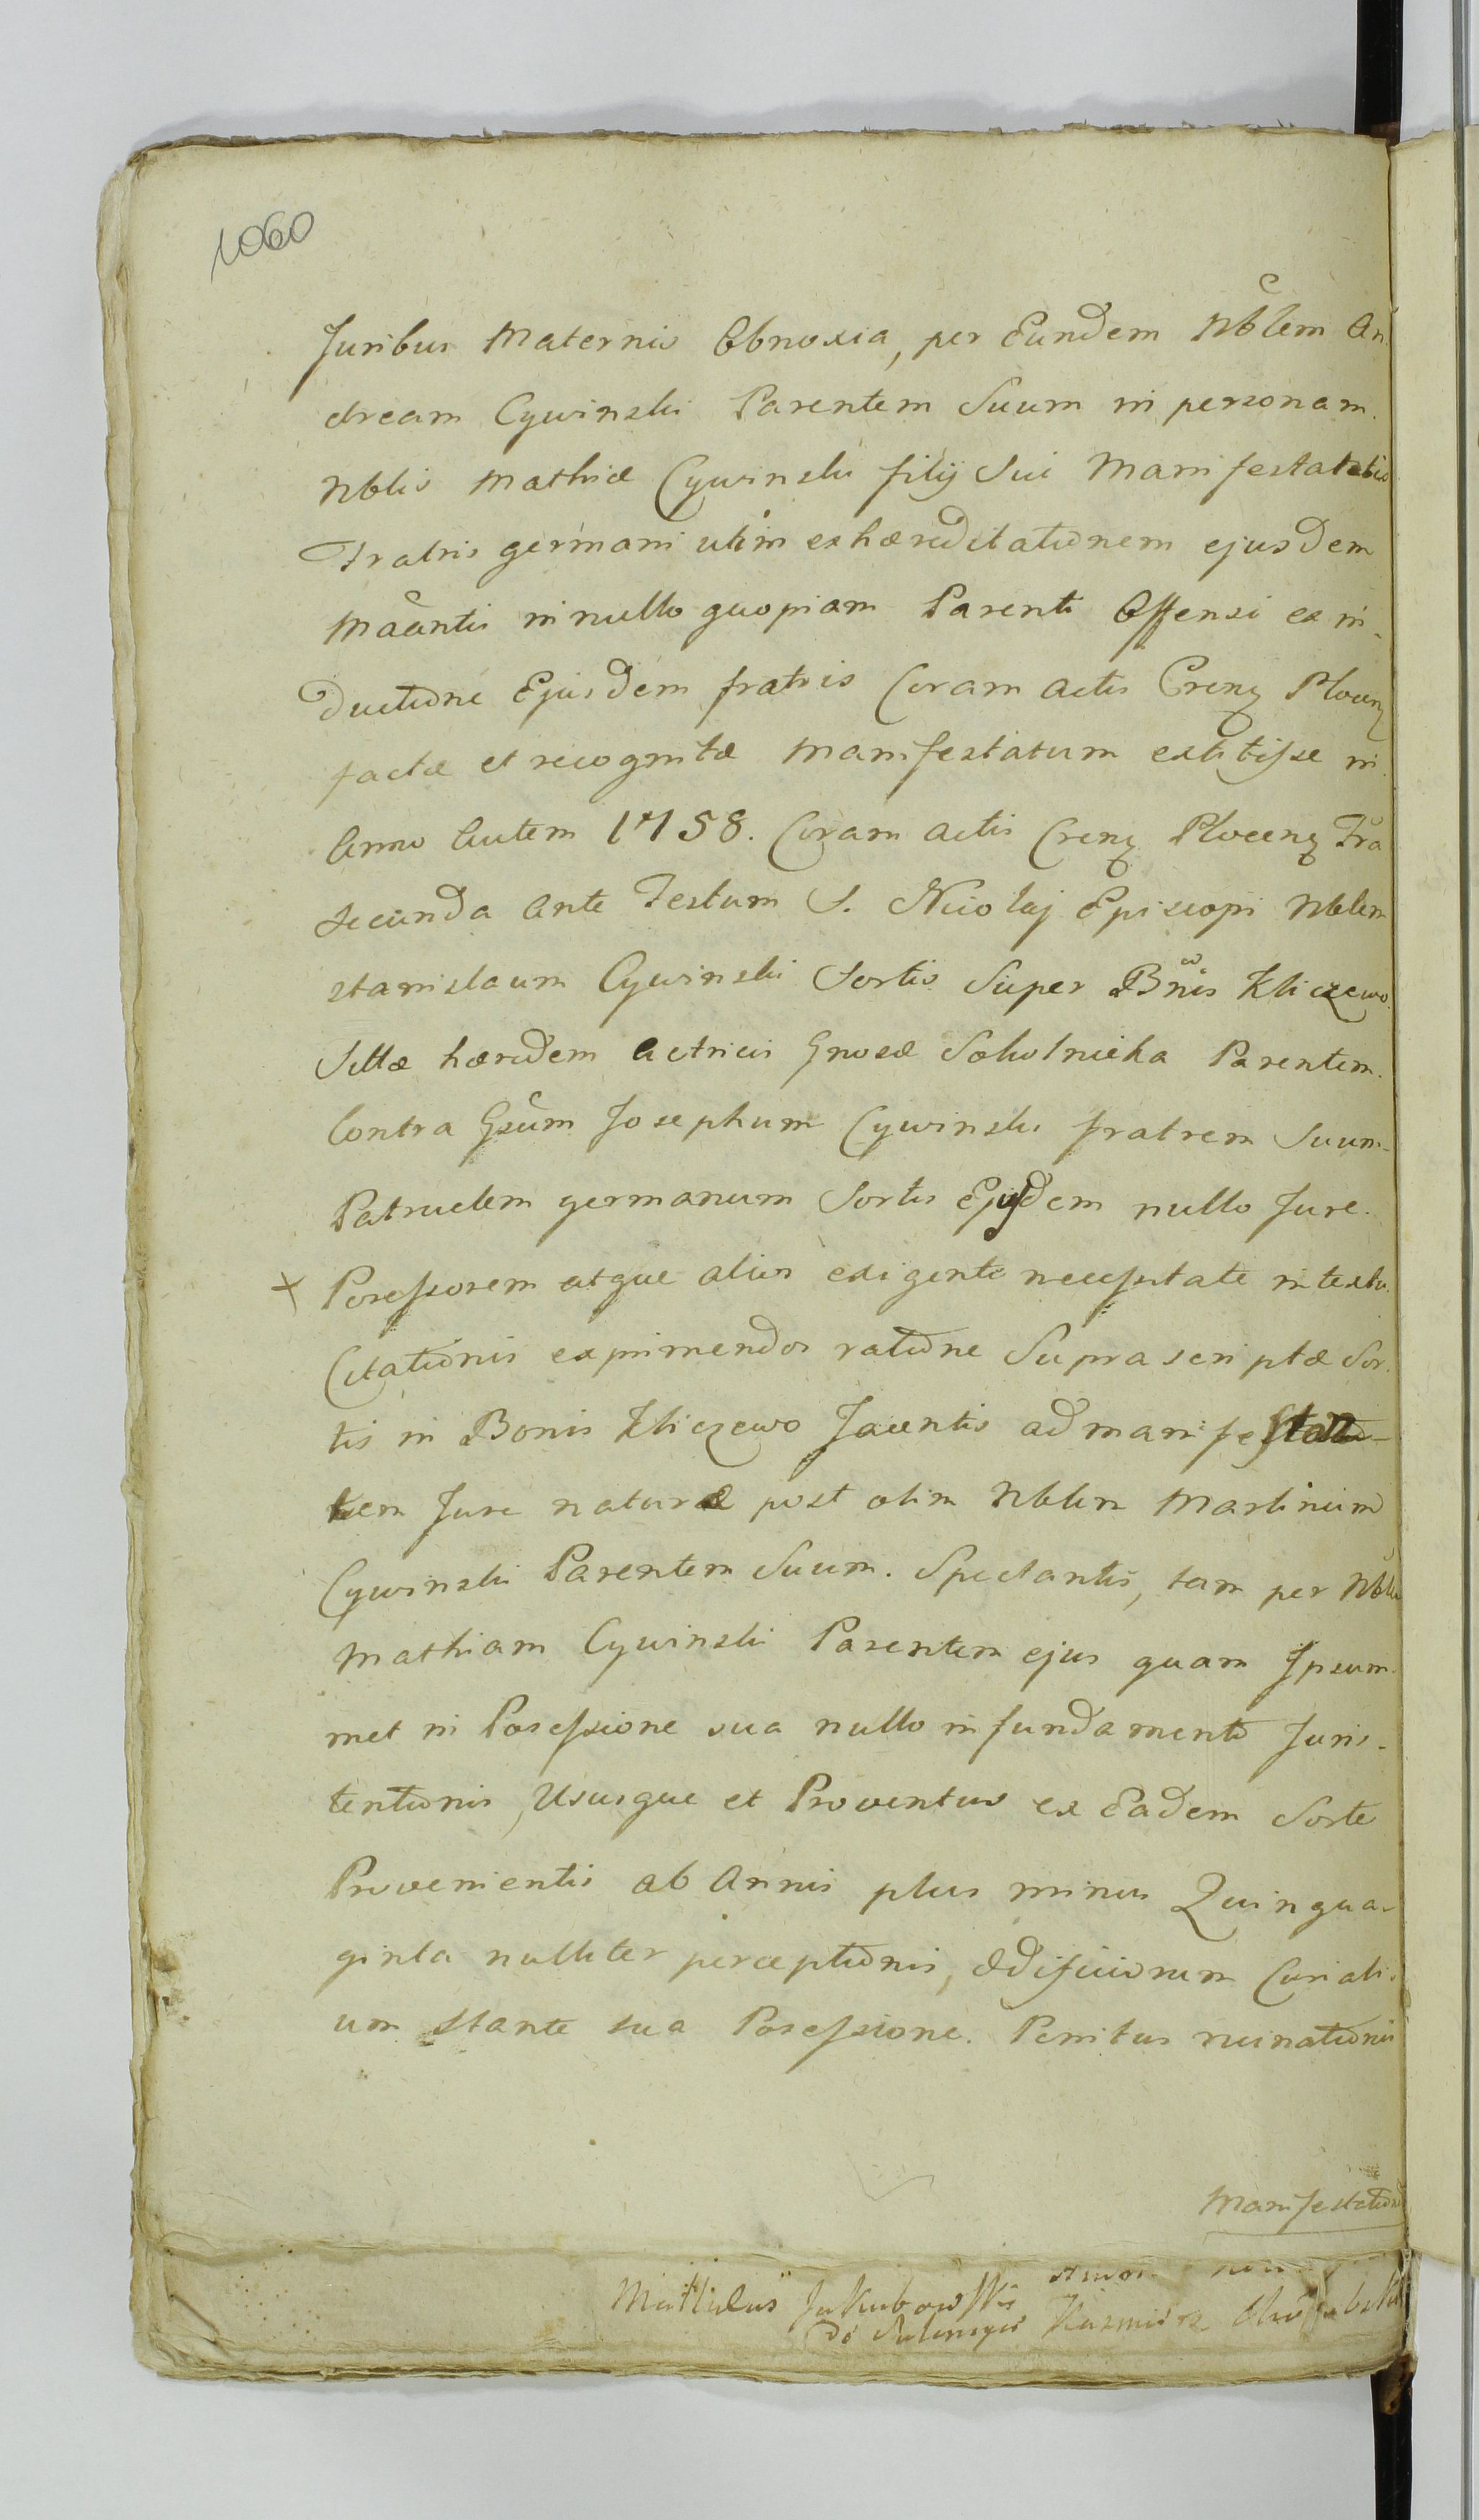 1060
Juribus Maternis Obnoxia, per Eundem Nblem An
dream Cywinski Parentem Suum in personam
Nblis Mathiæ Cywinski filij Sui Manifestantis
Fratris germani uti in exhæreditationem ejusdem
Maantis in nullo quopiam Parenti Offensi ex in-
ductione Ejusdem fratris Coram actis Crenz Plocenz
factæ et recognitæ manifestatum extitisse in
Anno Autem 1758. Coram actis Crenz Plocenz Fra
secunda Ante Festum S. Nicolaj Episcopi Nblem
stanislaum Cywinski Sortis Super Bnis Kliczewo
Sittæ hæredem Actricis Gnosæ Sokolnicka Parentem
Contra Gsum Josephum Cywinski fratrem Suum
Patruelem germanum Sortis Ejusdem nullo Jure
Possessorem atque alios exigente necessitate in textu
Citationis exprimendos ratione Suprascriptæ Sor
tis in Bonis Kliczewo Jacentis ad manifestan-
tem Jure naturæ post olim Nblem Martinum
Cywinski Parentem Suum. Spectantis, tam per Nblem
Mathiam Cywinski Parentem ejus quam Ipsum
met in Possessione sua nullo in fundamento Juris-
tentionis, Ususque et Proventus ex Eadem Sorte
Provenientis ab Annis plus minus Quinqua-
ginta nulliter perceptionis, Ædificiorum Curiali-
um stante sua Possessione. Penitus ruinationis
Manifestationis
Mathias Jakubowski